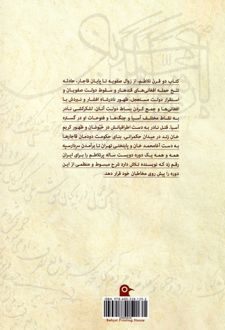 کتاب دو قرن تلاطم، از زوال صفویه تا پایان قاجار، حادثه
تلخ حمله افغانی‌های قندهار و سقوط دولت صفویان و
استقرار دولت مستعجل، ظهور نادرشاه افشار و نبردش با
افغانی‌ها و جمع کردن بساط دولت آنان، لشکرکشی نادر
به نقاط مختلف آسیا و جنگ‌ها و فتوحات او در گستره
آسیا، قتل نادر به دست اطرافیانش در خبوشان و ظهور کریم
خان زند در میدان حکمرانی، بنای حکومت دودمان قاجارها
به دست آقامحمد خان و پایتختی تهران تا برآمدن سردارسپه
همه و همه یک دوره دویست ساله پرتلاطم را برای ایران
رقم زد که نویسنده تلاش دارد شرح مبسوط و منظمی از این
دوره را پیش روی مخاطبان خود قرار دهد.
Behjat Printing House